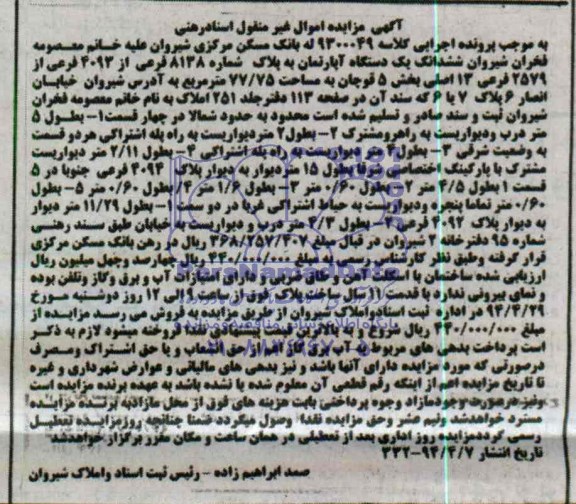 آگهی مزایده اموال غیر منقول اسنادرهنی
به موجب پرونده اجرایی کلاسه ۹۳۰۰۰۴۹ له بانک مسکن مرکزی شیروان علیه خانم معصومه
فخران شیروان ششدانگ یک دستگاه آپارتمان به پلاک شماره ۸۱۳۸ فرعی از ۴۰۹۳ فرعی از
۲۵۷۹ فرعی ۱۳ اصلی بخش ۵ قوچان به مساحت ۷۷/۷۵ مترمربع به آدرس شیروان خیابان
انصار ۶ پلاک ۷ یا ۶ که سند آن در صفحه ۱۱۳ دفترجلد ۲۵۱ املاک به نام خانم معصومه فخران
شیروان ثبت و سند صادر و تسلیم شده است محدود به حدود شمالا در چهار قسمت۱- بطول ۵
متر درب ودیواریست به راهرومشترک ۲- بطول۲ متردیواریست به راه پله اشتراکی هردو قسمت
به وضعیت شرقی ۳- بطول۴ متر دیواریست به راه پله اشتراکی ۴- بطول ۲/۱۱ متر دیواریست
مشترک با پارکینگ اختصاصی شرقا بطول ۱۵ متردیوار به دیوار پلاک ۴۰۹۴ فرعی جنوبا در ۵
قسمت ۱ بطول ۴/۵ متر ۲- بطول ۰/۶۰ متر ۳- بطول ۱/۶ متر ۴/ بطول ۰/۶۰ متر ۵- بطول
۰/۶۰ متر تماما پنجره ودیواریست به حیاط اشتراکی غربا در دو سمت ۱- بطول ۱۱/۲۹ متر دیوار
به دیوار پلاک ۴۰۹۲ فرعی ۲- بطول ۴/۳ متر درب و دیواریست به خیابان طبق سند رهنی
شماره ۹۵ دفترخانه ۲ شیروان در قبال مبلغ ۳۶۸/۲۵۷/۳۰۷ ریال در رهن بانک مسکن مرکزی
قرار گرفته وطبق نظر کارشناس رسمی به مبلغ ۴۴۰/۰۰۰/۰۰۰ ریال چهارصد وچهل میلیون ریال
ارزیابی شده ساختمان با اسکلت آهن و طاق ضربی و دارای امتیازات آب و برق وگاز وتلفن بوده
و نمای بیرونی ندارد با قدمت ۱۱ سال ساخت پلاک فوق از ساعت ۹ الی ۱۲ روز دوشنبه مورخ
۹۴/۴/۲۹ در اداره ثبت اسنادواملاک شیروان از طریق مزایده به فروش می رسد مزایده از
مبلغ ۴۴۰/۰۰۰/۰۰۰ ریال شروع و به بالاترین قیمت پیشنهادی نقدا فروخته میشود لازم به ذکر
است پرداخت بدهی های مربوط به آب برق گاز اعم از حق انشعاب و یا حق اشتراک ومصرف
درصورتی که مورد مزایده دارای آنها باشد و نیز بدهی های مالیاتی و عوارض شهرداری و غیره
تا تاریخ مزایده اعم از اینکه رقم قطعی آن معلوم شده یا نشده باشد به عهده برنده مزایده است
ونیز درصورت وجودمازاد وجوه پرداختی بابت هزینه های فوق از محل مازادبه برنده مزایده
مسترد خواهدشد ونیم عشر وحق مزایده نقدا وصول میگردد ضمنا چنانچه روزمزایده تعطیل
رسمی گرددمزایده روز اداری بعد از تعطیلی در همان ساعت و مکان مقرر برگزار خواهدشد
تاریخ انتشار ۹۴/۴/۷-۳۳۲
صمد ابراهیم زاده - رئیس ثبت اسناد واملاک شیروان